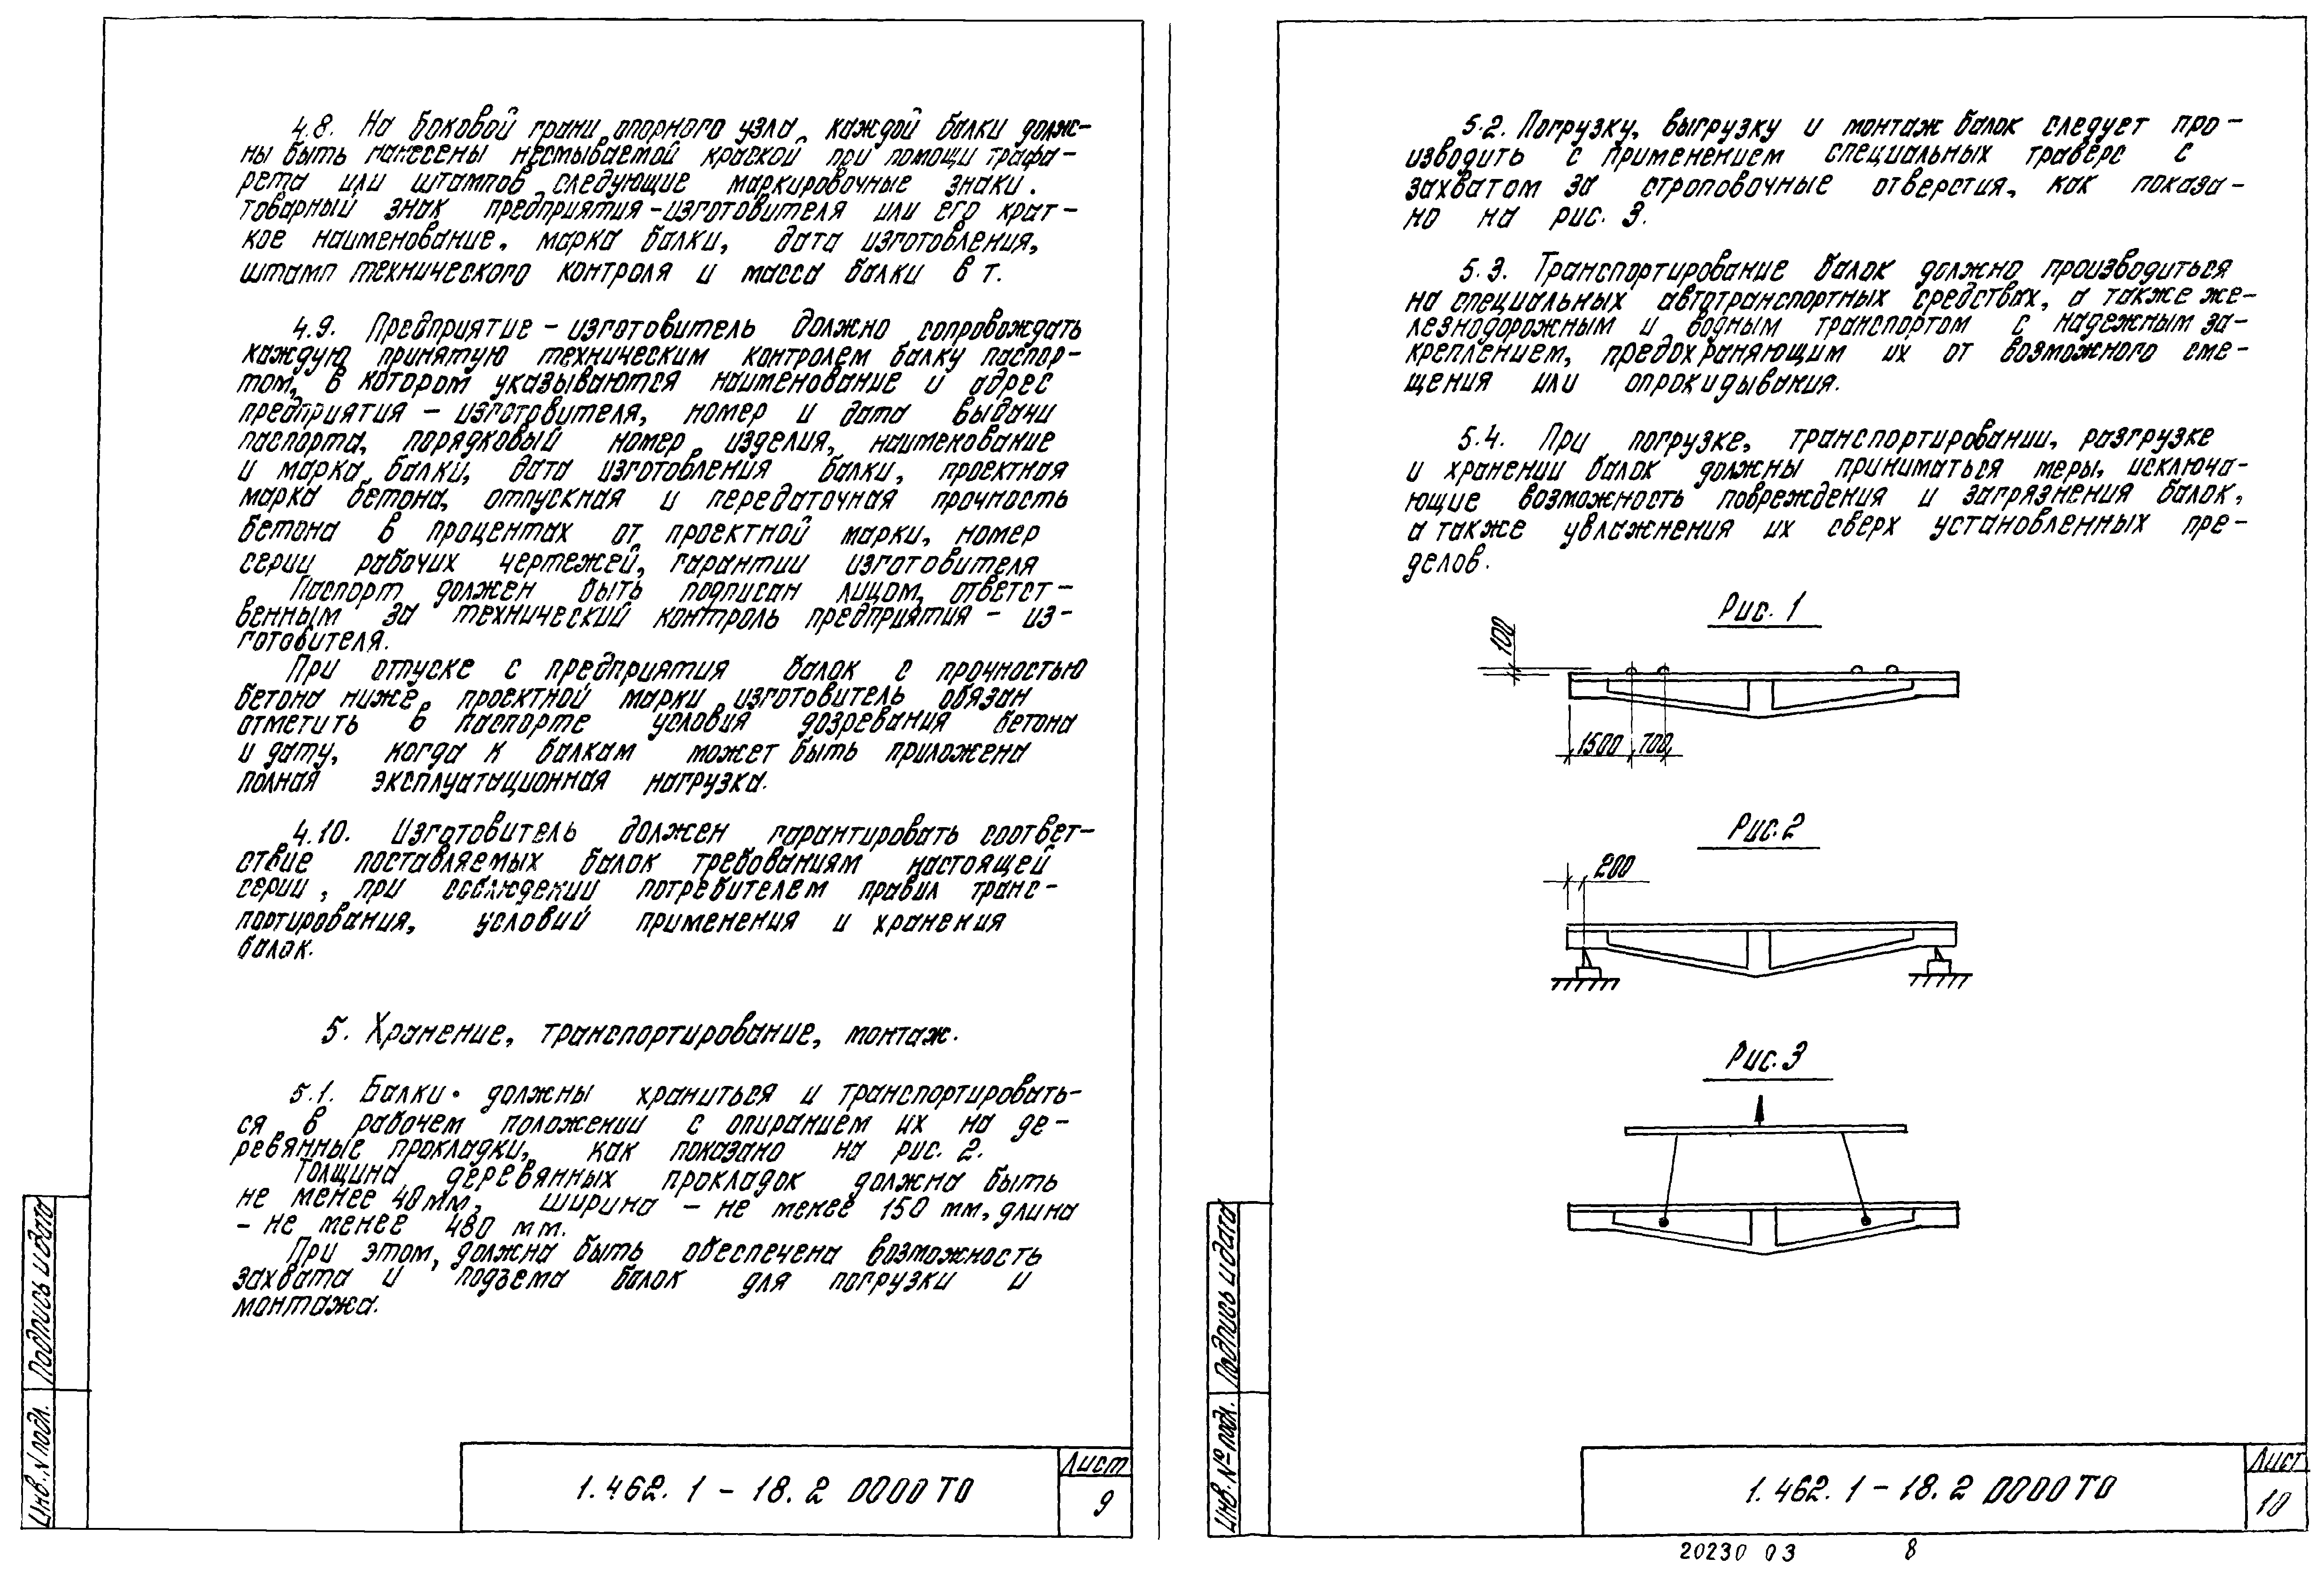 4.8. На боковой грани опорного узла каждой балки долж-
ны быть нанесены несмываемой краской при помощи трафа-
рета или штампов следующие маркировочные знаки.
товарный знак предприятия-изготовителя или его крат-
кое наименование, марка балки, дата изготовления,
штамп технического контроля и масса балки в т.
4.9. Предприятие-изготовитель должно сопровождать
каждую принятую техническим контролем балку паспор-
том, в котором указываются наименование и адрес
предприятия-изготовителя, номер и дата выдачи
паспорта, порядковый номер изделия, наименование
и марка балки, дата изготовления балки, проектная
марка бетона, отпускная и передаточная прочность
бетона в процентах от проектной марки, номер
серии рабочих чертежей, гарантии изготовителя
Паспорт должен быть подписан лицом, ответст-
венным за технический контроль предприятия-из-
готовителя.
При отпуске с предприятия балок с прочностью
бетона ниже проектной марки изготовитель обязан
отметить в паспорте условия дозревания бетона
и дату, когда к балкам может быть приложена
полная эксплуатационная нагрузка.
4.10. Изготовитель должен гарантировать соответ-
ствие поставляемых балок требованиям настоящей
серии, при соблюдении потребителем правил транс-
портирования, условий применения и хранения
балок.
5. Хранение, транспортирование, монтаж.
5.1. Балки должны храниться и транспортировать-
ся в рабочем положении с опиранием их на де-
ревянные прокладки, как показано на рис. 2.
Толщина деревянных прокладок должна быть
не менее 40мм, ширина - не менее 150 мм, длина
- не менее 480 мм.
При этом, должна быть обеспечена возможность
захвата и подъема балок для погрузки и
монтажа.
Подпись и дата
Инв. N подл.
1.462.1-18.2 0000 ТО
Лист
9
5.2. Погрузку, выгрузку и монтаж балок следует про-
изводить с применением специальных траверс с
захватом за строповочные отверстия, как показа-
но на рис. 3.
5.3. Транспортирование балок должно производиться
на специальных автотранспортных средствах, а также же-
лезнодорожным и водным транспортом с надежным за-
креплением, предохраняющим их от возможного сме-
щения или опрокидывания.
5.4. При погрузке, транспортировании, разгрузке
и хранении балок должны приниматься меры, исключа-
ющие возможность повреждения и загрязнения балок,
а также увлажнения их сверх установленных пре-
делов.
Рис. 1
100
1500 700
Рис. 2
200
Рис. 3
Подпись и дата
Инв. № подл.
1.462.1-18.2 0000 ТО
Лист
10
20230 03 8